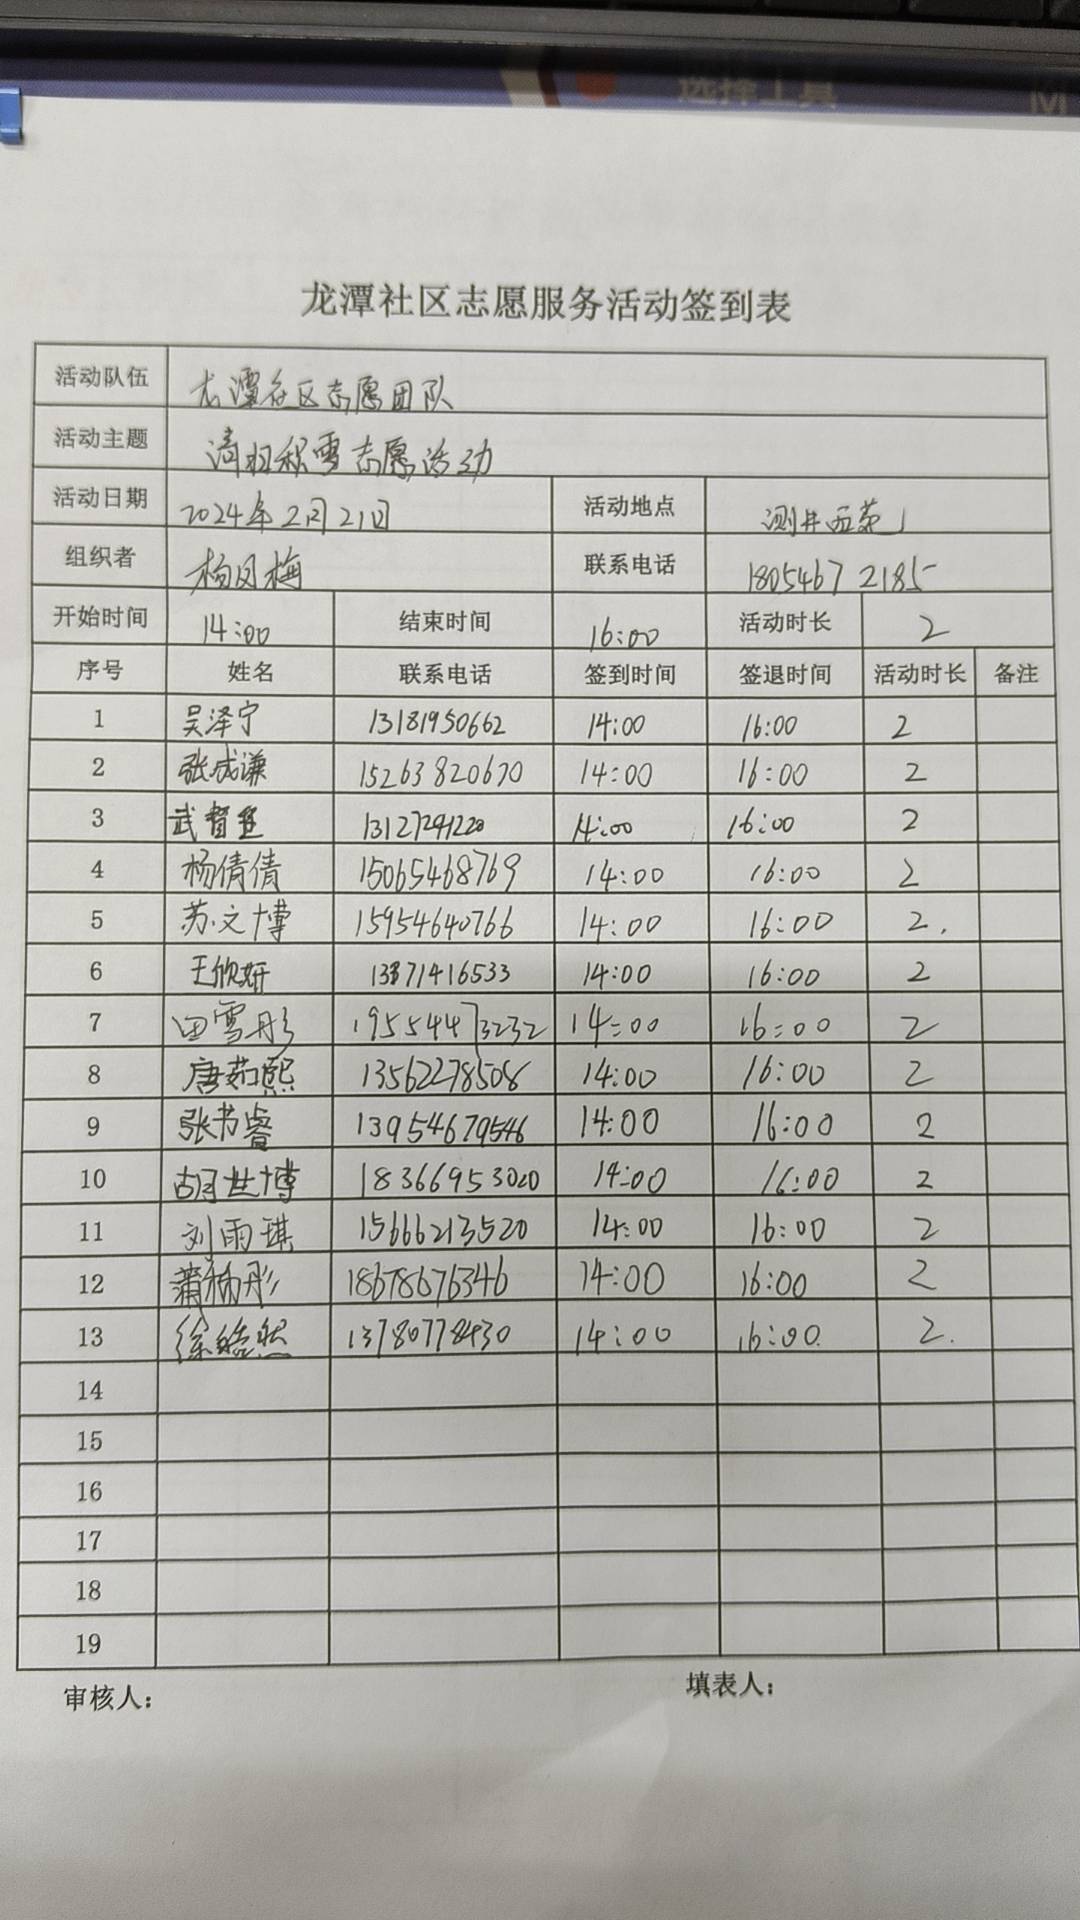 选择工具
M
龙潭社区志愿服务活动签到表
活动队伍 龙潭社区志愿团队
活动主题 清扫积雪志愿活动
活动日期 2024年2月21日 活动地点 测井西
组织者 杨凤梅 联系电话 18054672185
开始时间 14:00 结束时间 16:00 活动时长 2
序号 姓名 联系电话 签到时间 签退时间 活动时长 备注
1 吴泽宁 13181950662 14:00 16:00 2
2 张成谦 15263820670 14:00 16:00 2
3 武 13127291220 14:00 16:00 2
4 杨倩倩 15065468769 14:00 16:00 2
5 苏文博 15954640766 14:00 16:00 2.
6 王欣妍 14:00 16:00 2
7 田雪彤 19554473232 14:00 16:00 2
8 唐茹熙 13562278508 14:00 16:00 2
9 张书睿 13954679546 14:00 16:00 2
10 胡世博 18366953020 14:00 16:00 2
11 刘雨琪 15666213520 14:00 16:00 2
12 彤 18678676346 14:00 16:00 2
13 徐皓然 13780778430 14:00 16:00. 2.
14
15
16
17
18
19
审核人： 填表人：